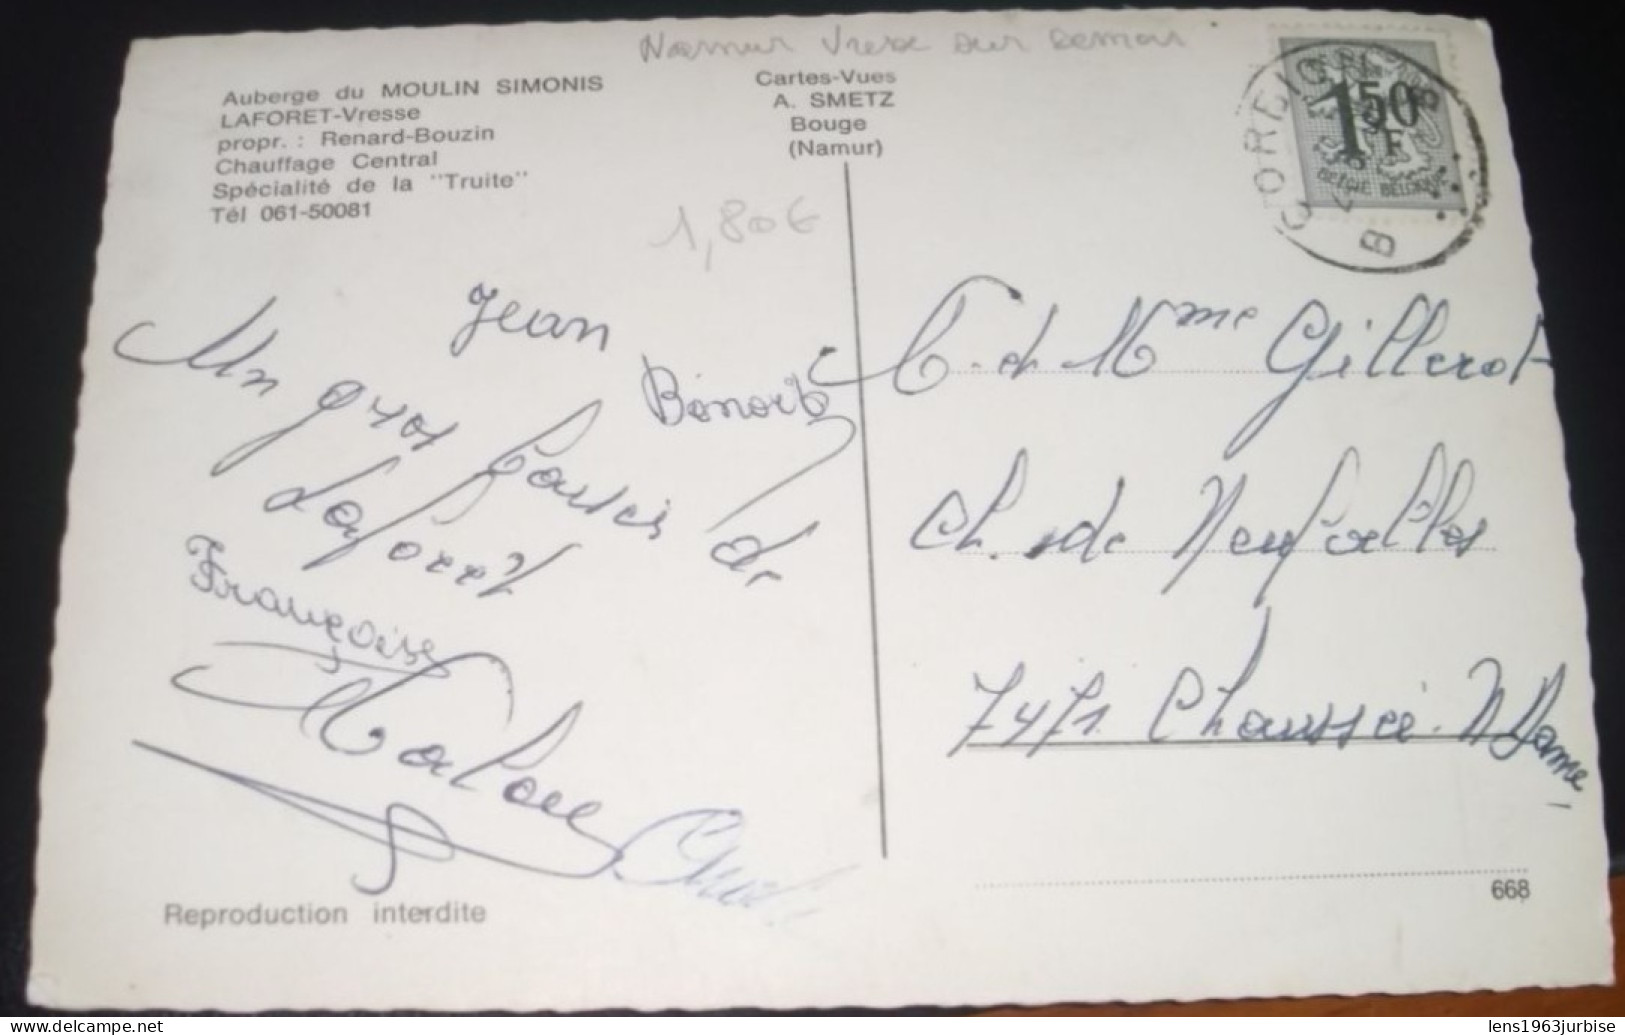 Namur Vresse sur Semois
Auberge du MOULIN SIMONIS
LAFORET-Vresse
propr. : Renard-Bouzin
Chauffage Central
Spécialité de la "Truite"
Tél 061-50081
Cartes-Vues
A. SMETZ
Bouge
(Namur)
1,80€
1F50
BELGIE BELGIQUE
B
Jean
Benoit
Un gros baisers de
Laforêt
Françoise
Reproduction interdite
et Mme Gillerot
Ch. de Neufvilles
7471 Chaussée. N Dame
668
lens1963jurbise